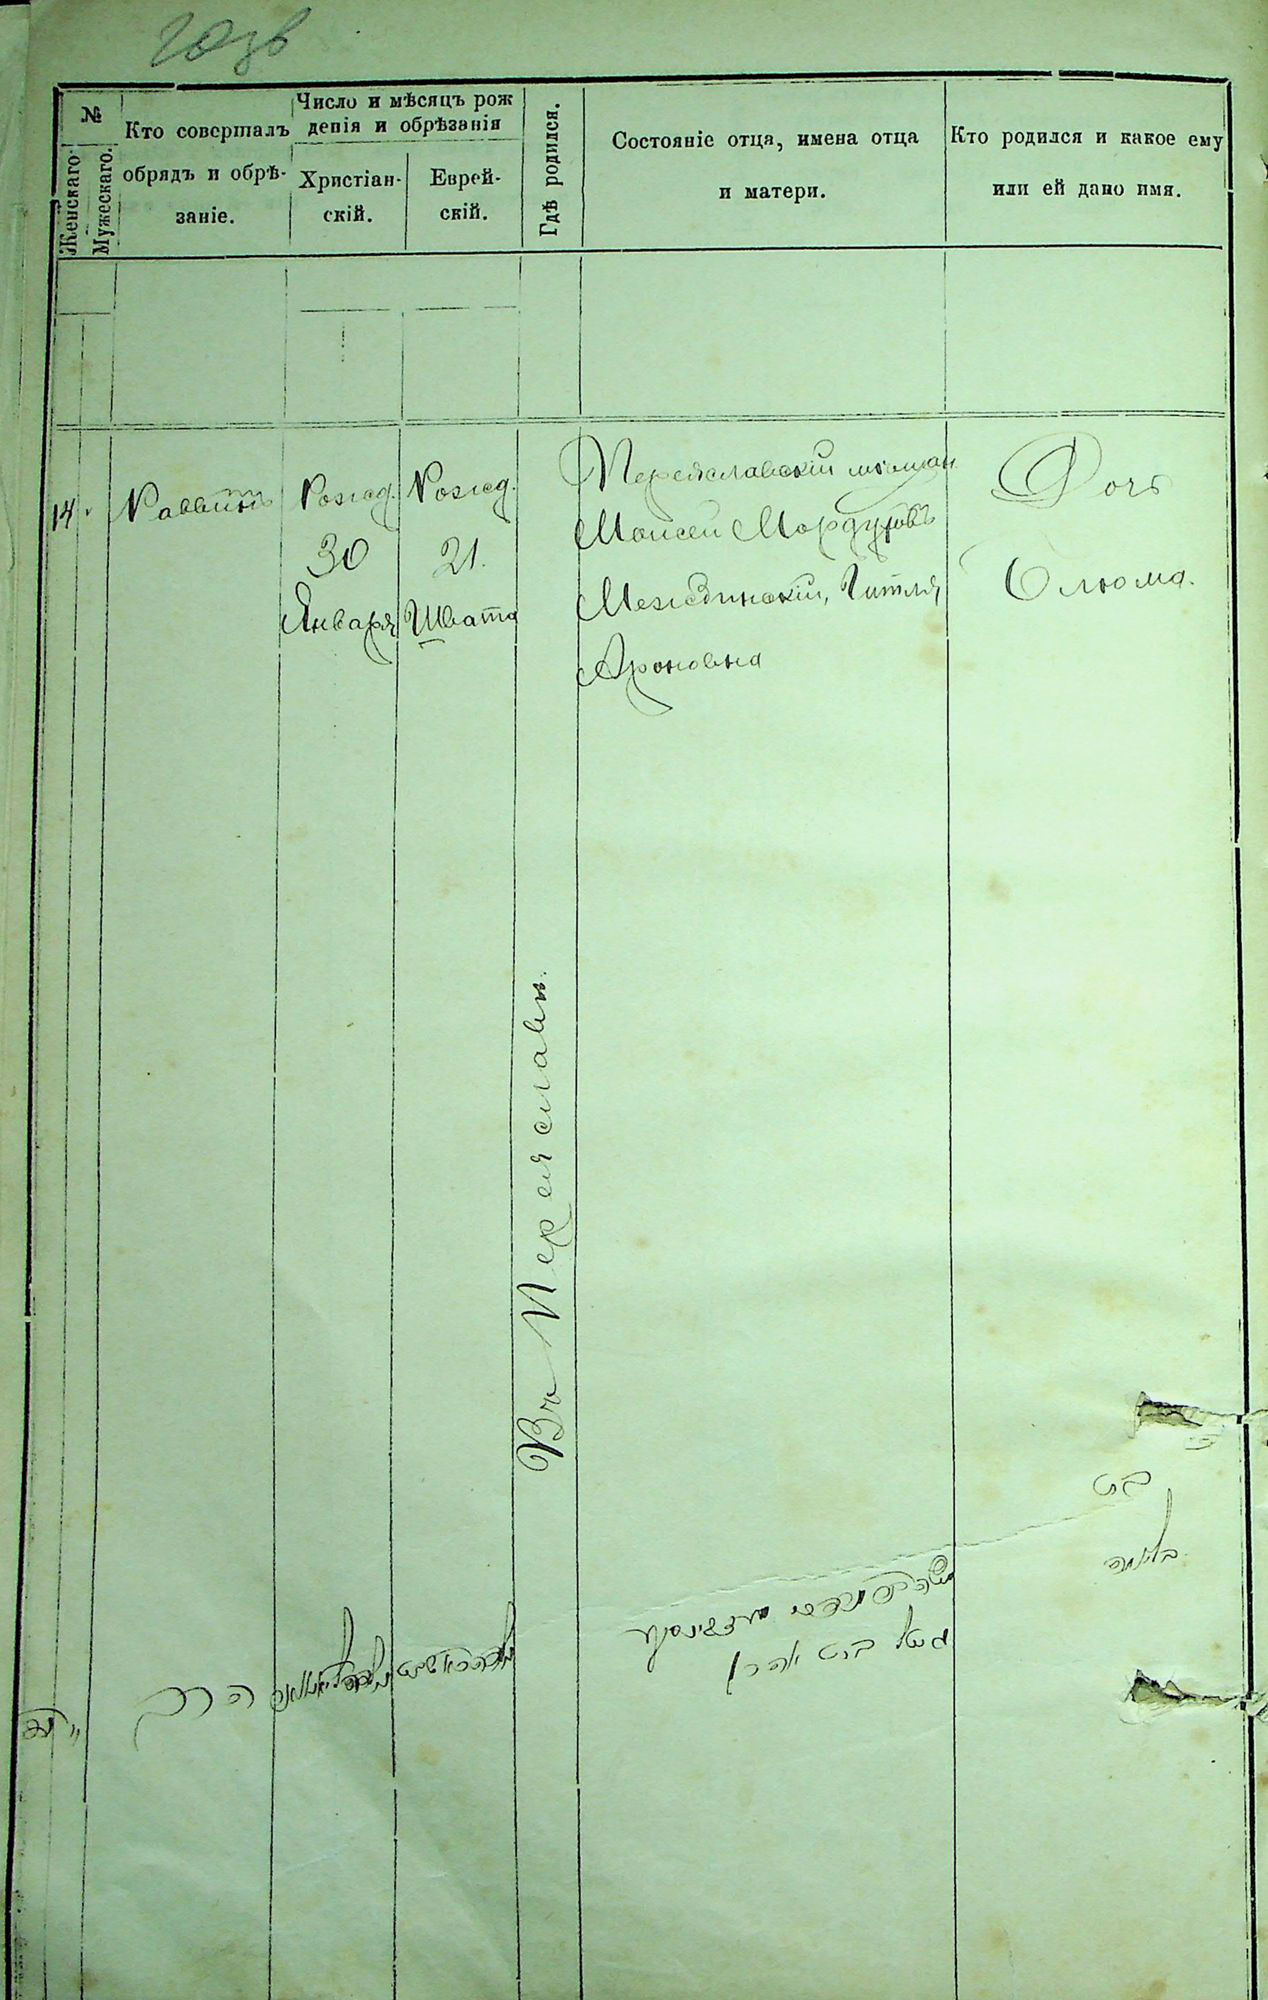 №
Женскаго.
Мужескаго.
Кто совершалъ
обрядъ и обрѣ-
заніе.
Число и мѣсяцъ рож
денія и обрѣзанія
Христіан-
скій.
Еврей-
скій.
Гдѣ родился.
Состояніе отца, имена отца
и матери.
Кто родился и какое ему
или ей дано имя.
14.
Раввинъ
Рожд.
30
Января
Рожд.
21.
Швата
Въ Переяславѣ.
Переяславскій мѣщан.
Моисей Мордуховъ
Межединскій, Гитля
Ароновна
Дочь
Блюма.
בת
בלומה
גיטל בת אהרן
הרב